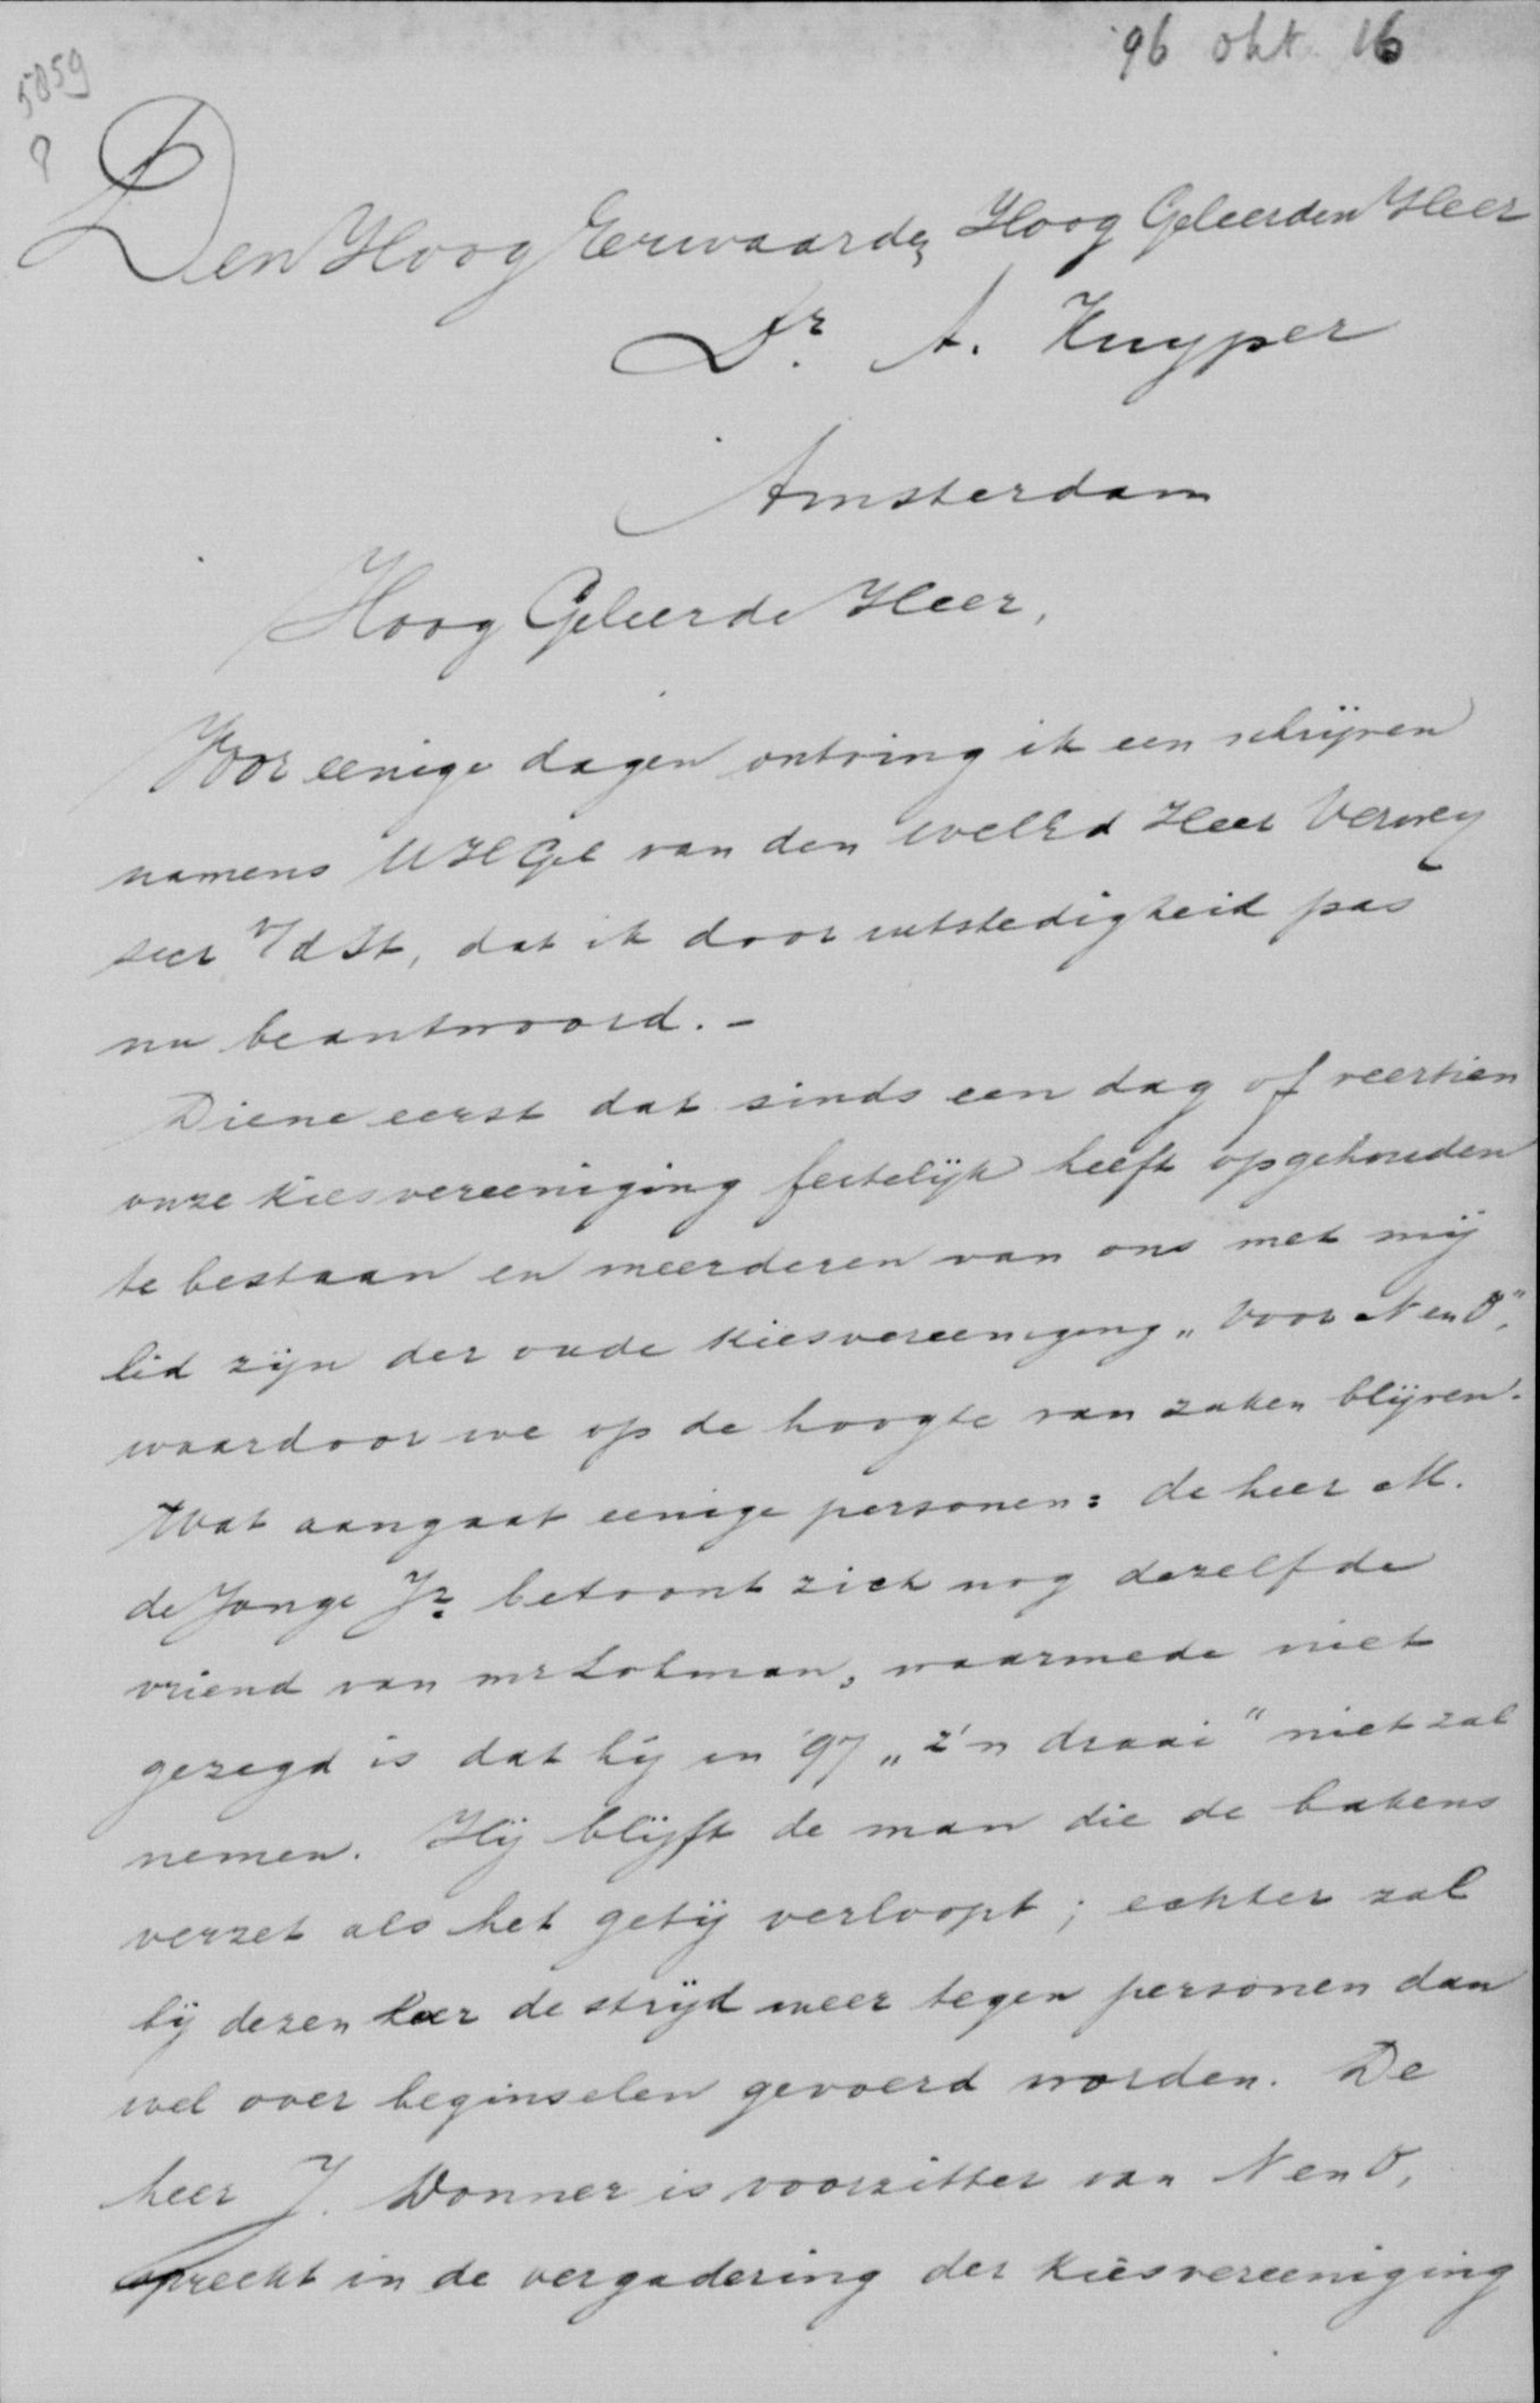 '96 okt. 16
5859
Den Hoog Eerwaarden Hoog Geleerden Heer
Dr. A. Kuyper
Amsterdam
Hoog Geleerde Heer,
Voor eenige dagen ontving ik een schrijven
namens UHGel van den WelEd Heer Verwey
secr / d St, dat ik door uitstedigheid pas
nu beantwoord. -
Diene eerst dat sinds een dag of veertien
onze kiesvereeniging feitelijk heeft opgehouden
te bestaan en meerderen van ons met mij
lid zijn der oude kiesvereeniging „Voor N en O",
waardoor we op de hoogte van zaken blijven.
Wat aangaat eenige personen: de heer M.
de Jonge Jr. betoont zich nog dezelfde
vriend van mr Lohman, waarmede niet
gezegd is dat hij in '97 „z'n draai" niet zal
nemen. Hij blijft de man die de bakens
verzet als het getij verloopt; echter zal
bij dezen heer de strijd meer tegen personen dan
wel over beginselen gevoerd worden. De
heer J. Donner is voorzitter van N en O,
spreekt in de vergadering der kiesvereeniging